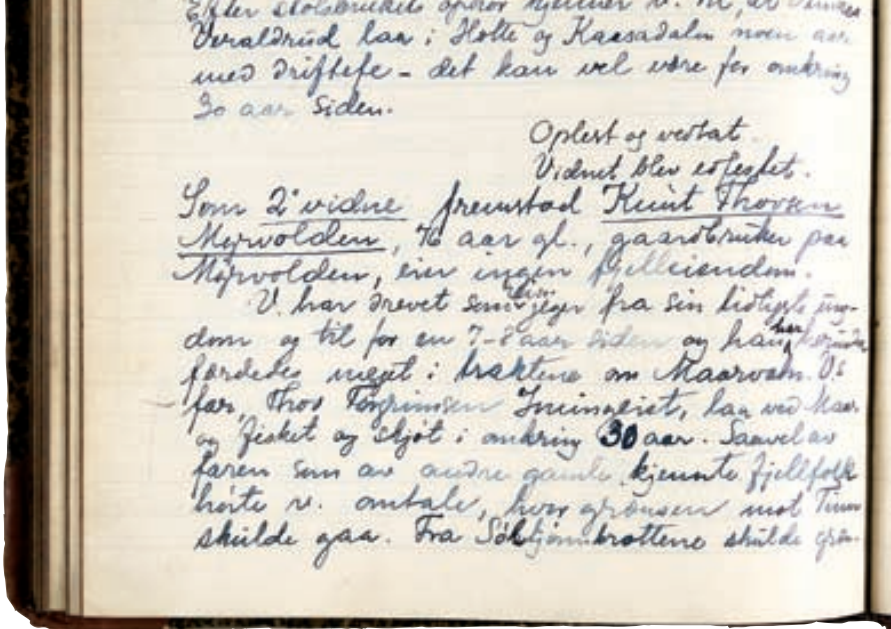 Efter stølsbrukets ophør kjenner v. til, at
Veraldrud laa i Hotte og Kaasadalen noen aar
med driftefe - det kan vel være for omkring
30 aar siden.
Oplest og vedtat.
Vidnet blev edfestet.
Som 2' vidne fremstod Knut Thovsen
Myrvolden, 76 aar gl., gaardbruker paa
Myrvolden, eier ingen fjelleiendom.
V. har drevet som jeger fra sin tidligste ung-
dom og til for en 7-8 aar siden og han har
færdedes meget i traktene om Maarvatn. V.s
far, Thov Torgrimsen, laa ved Maar
og fisket og skjøt i omkring 30 aar. Saavel av
faren som av andre gamle kjennte fjellfolk
hørte v. omtale, hvor grænsen mot Tinn
skulde gaa. Fra Søltjønnbrottene skulde græn-